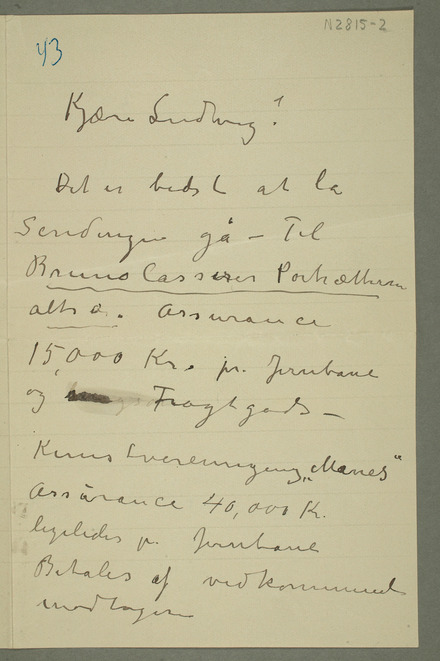 N2815-2
43
Kjære Ludvig!
Det er bedst at la
Sendingen gå – Til
Bruno Cassirer Portrætterne
altså. Assurance
15,000 Kr. pr. Jernbane
og Fragtgods –
Kunstvereinigung „Manes“
Assurance 40,000 Kr.
ligeledes pr Jernbane
Betales af vedkommende
modtagere